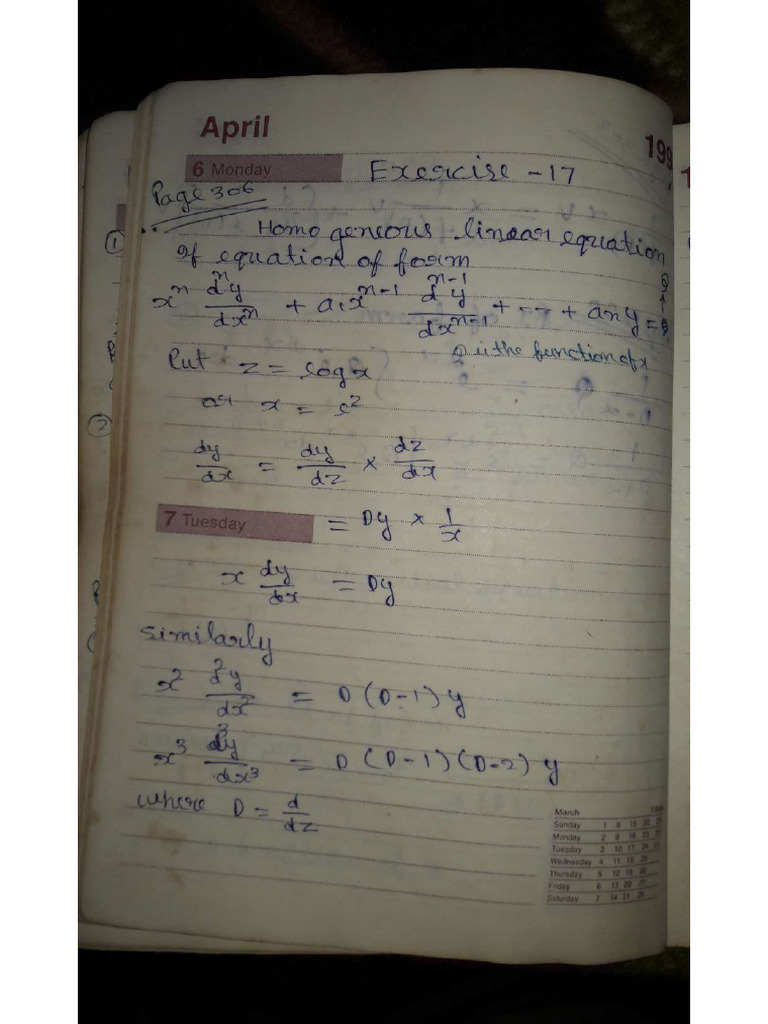 April
199
6 Monday
Exercise - 17
Page 306
Homogeneous linear equation
① If equation of form
xⁿ dⁿy/dxⁿ + a₁xⁿ⁻¹ dⁿ⁻¹y/dxⁿ⁻¹ + -- + any = Q
Q is the function of x
Put z = log x
or x = e^z
dy/dx = dy/dz × dz/dx
7 Tuesday
= Dy × 1/x
x dy/dx = Dy
similarly
②
x² d²y/dx² = D(D-1)y
x³ d³y/dx³ = D(D-1)(D-2)y
where D = d/dz
March
Sunday 1 8 15 22
Monday 2 9 16 23
Tuesday 3 10 17 24
Wednesday 4 11 18 25
Thursday 5 12 19 26
Friday 6 13 20 27
Saturday 7 14 21 28